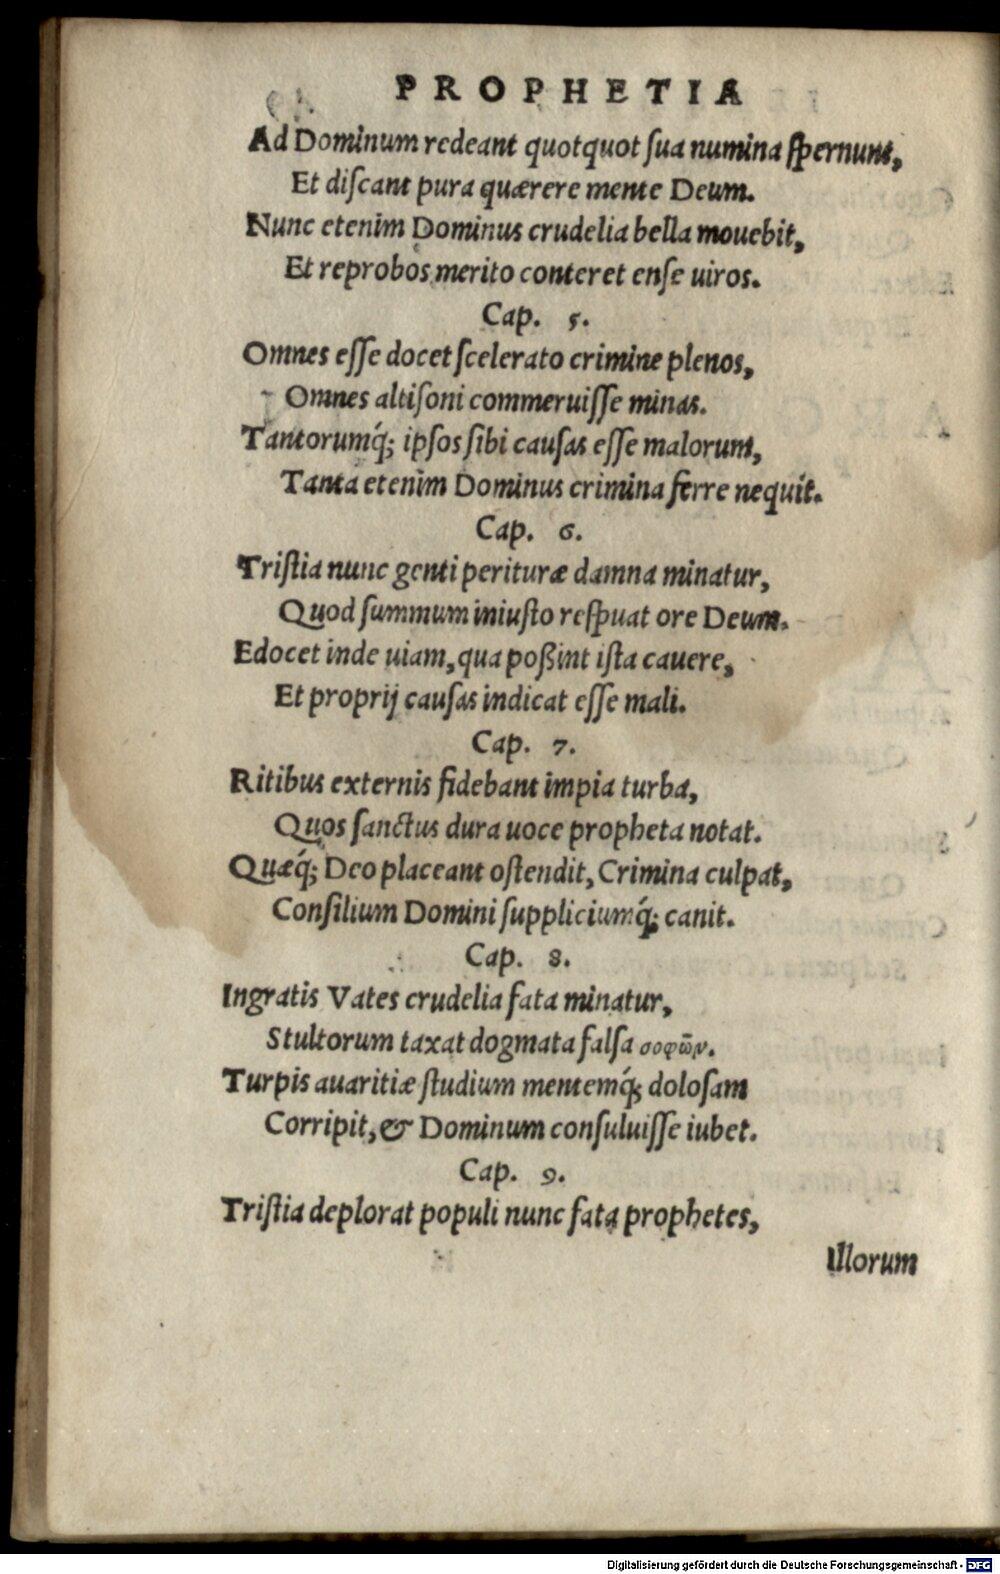 PROPHETIA
Ad Dominum redeant quotquot ſua numina ſpernunt,
Et diſcant pura quærere mente Deum.
Nunc etenim Dominus crudelia bella mouebit,
Et reprobos merito conteret enſe uiros.
Cap. 5.
Omnes eſſe docet ſcelerato crimine plenos,
Omnes altiſoni commeruiſſe minas.
Tantorumq́; ipſos ſibi cauſas eſſe malorum,
Tanta etenim Dominus crimina ferre nequit.
Cap. 6.
Triſtia nunc genti perituræ damna minatur,
Quod ſummum iniuſto reſpuat ore Deum.
Edocet inde uiam, qua poßint iſta cauere,
Et proprij cauſas indicat eſſe mali.
Cap. 7.
Ritibus externis fidebant impia turba,
Quos ſanctus dura uoce propheta notat.
Quæq́; Deo placeant oſtendit, Crimina culpat,
Conſilium Domini ſuppliciumq́; canit.
Cap. 8.
Ingratis Vates crudelia fata minatur,
Stultorum taxat dogmata falſa σοφῶν.
Turpis auaritiæ ſtudium mentemq́; doloſam
Corripit, & Dominum conſuluiſſe iubet.
Cap. 9.
Triſtia deplorat populi nunc fata prophetes,
Illorum
Digitalisierung gefördert durch die Deutsche Forschungsgemeinschaft - DFG